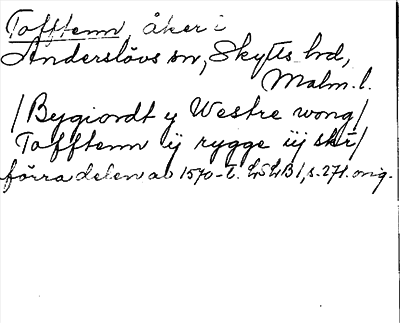 Tofftenn, åker i
Anderslövs sn, Skytts hd,
Malm. l.
/Bygiordt y Westre wong/
Tofftenn ij rygge iij skr/
förra delen av 1570-t. LSLB1, s. 271. orig.